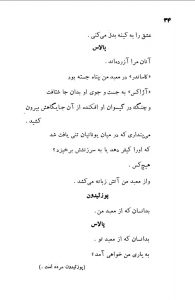 ۳۴
عشق را به کینه بدل می‌کنی.
پالاس
آنان مرا آزرده‌اند.
«کاساندر» در معبد من پناه جسته بود
«آژاکس» به جست و جوی او بدان جا شتافت
و چنگه در گیسوان او افکنده از آن جایگاهش بیرون
کشید.
می‌پنداری که در میان یونانیان تنی یافت شد
که اورا کیفر دهد یا به سرزنش برخیزد؟
هیچ‌کس.
واز معبد من آتش زبانه می‌کشد.
پوزئیدون
بدانسان که از معبد من.
پالاس
بدانسان که از معبد تو.
به یاری من خواهی آمد؟
(پوزئیدون مردد است.)